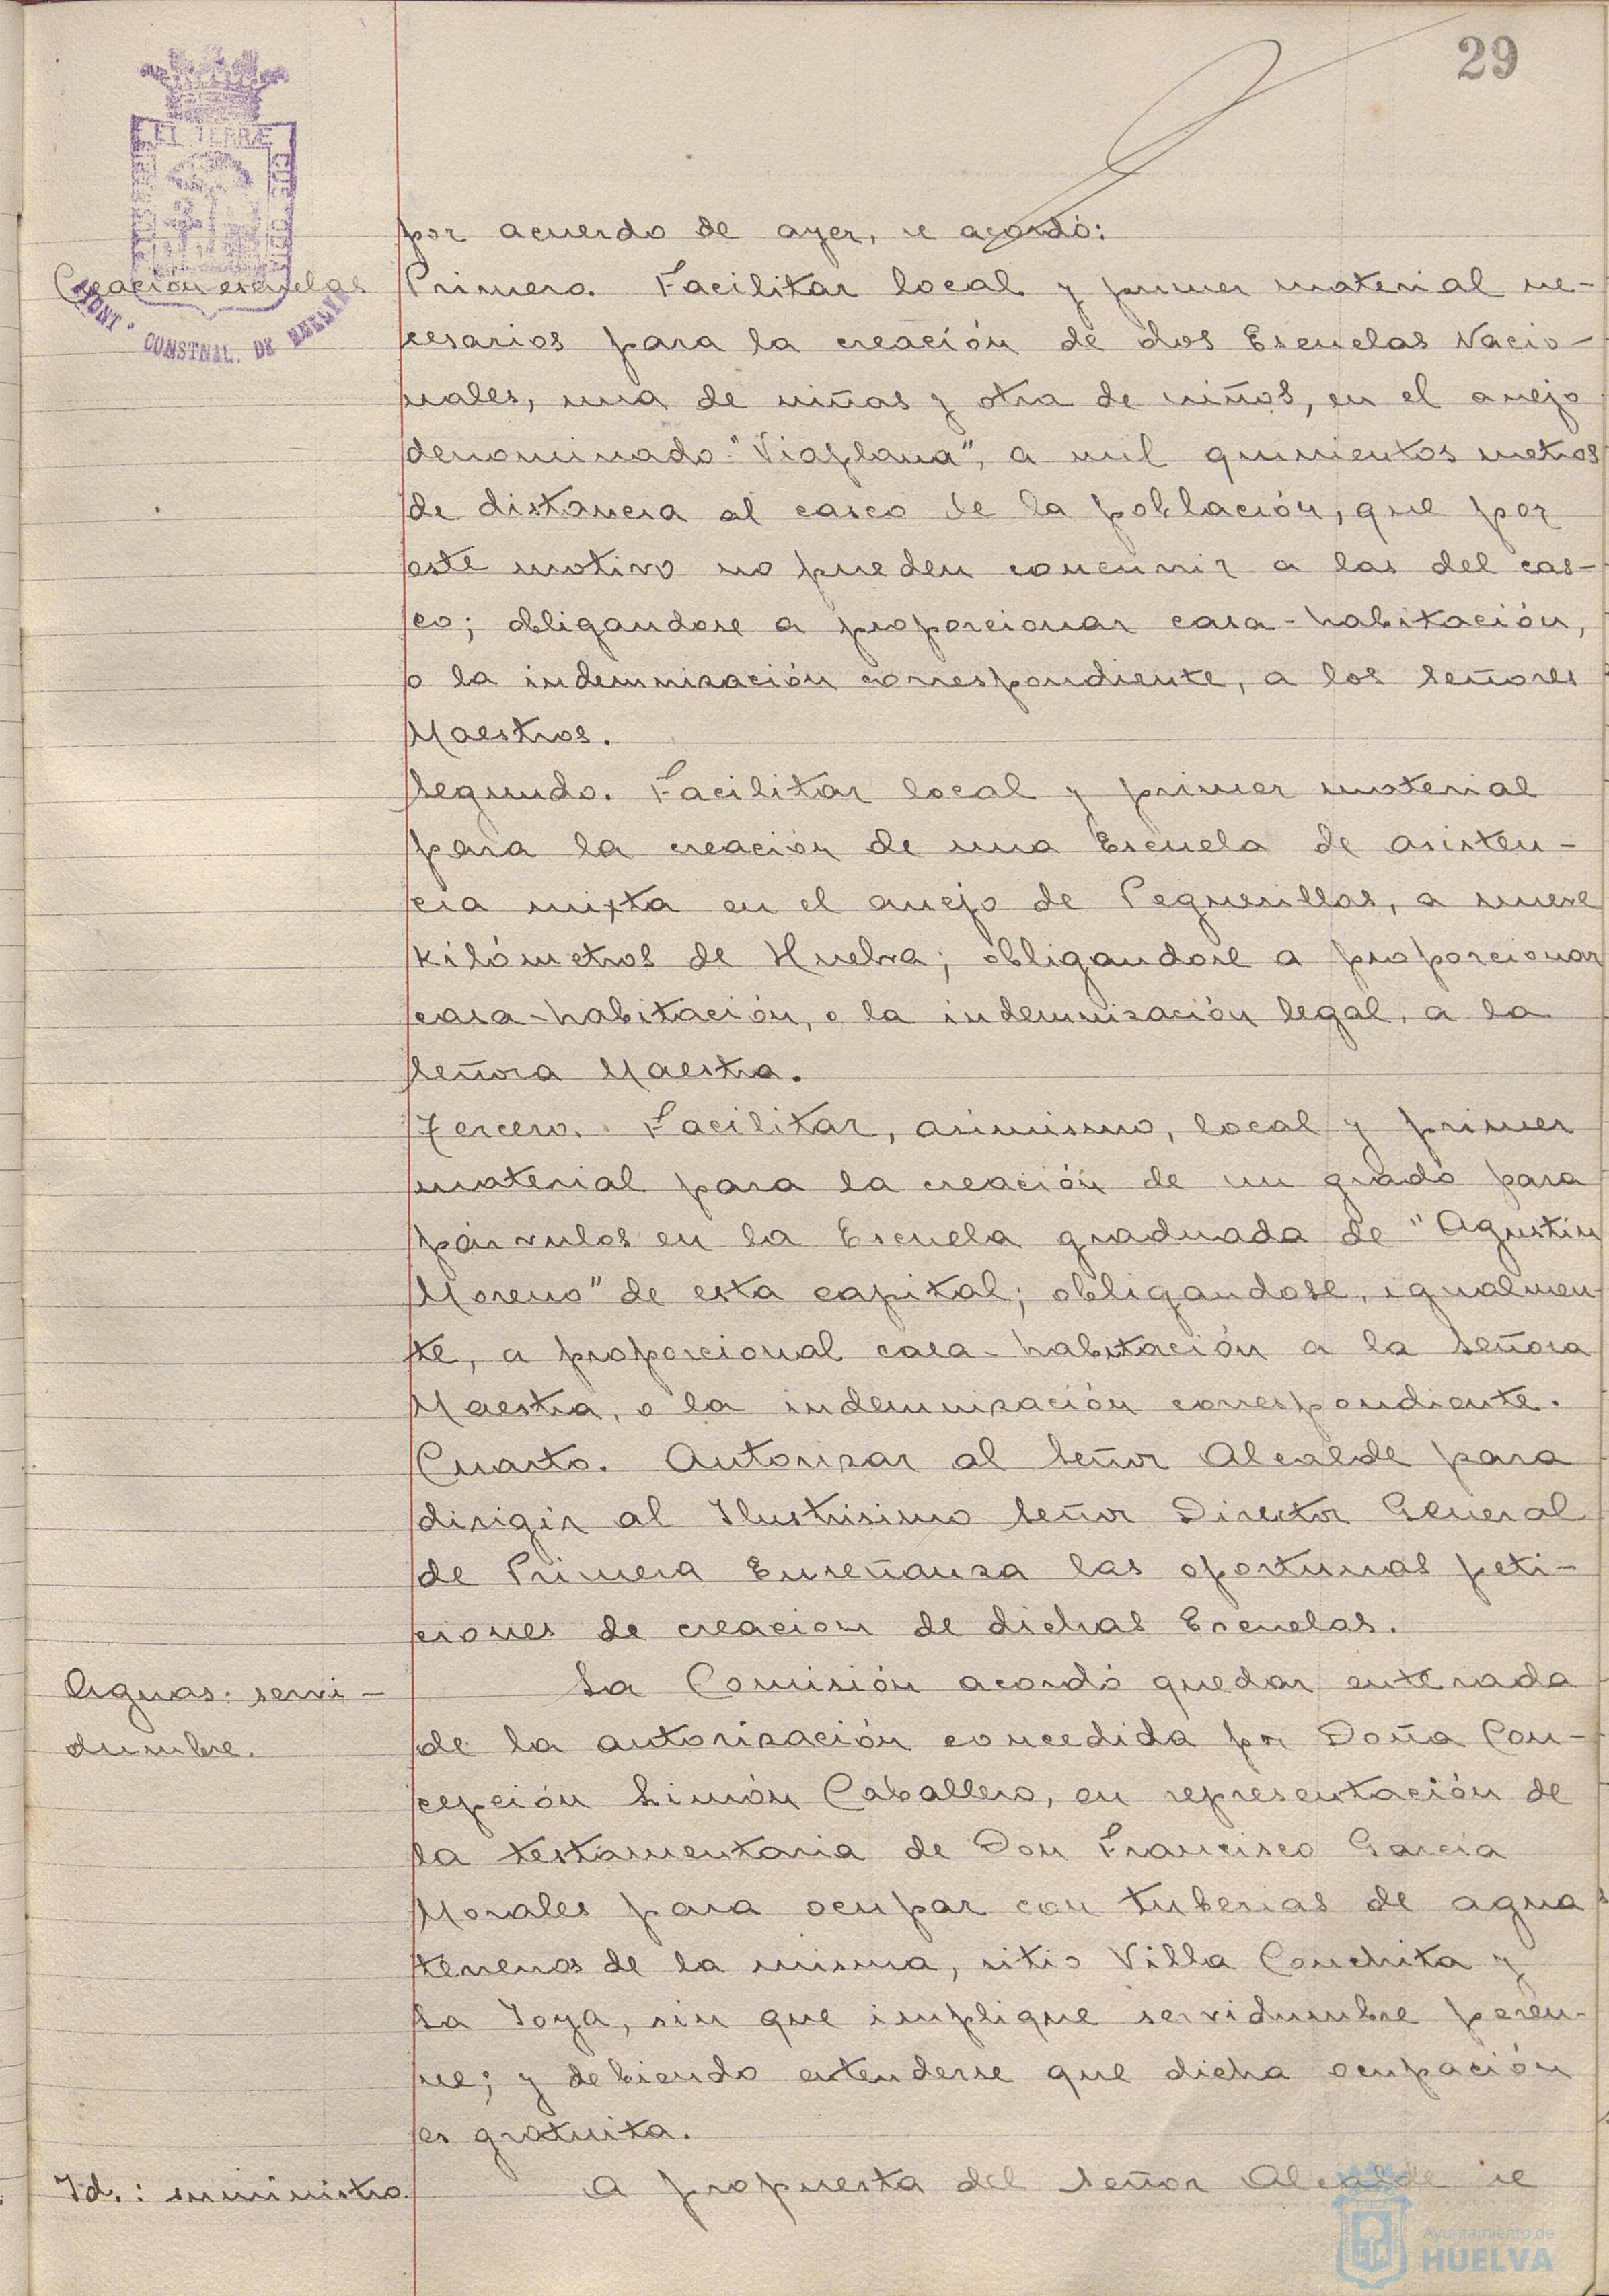 29
por acuerdo de ayer, se acordó:
Creación escuelas
Primero. Facilitar local y primer material ne-
cesarios para la creación de dos Escuelas Nacio-
nales, una de niñas y otra de niños, en el anejo
denominado "Viaplana", a mil quinientos metros
de distancia al casco de la población, que por
este motivo no pueden concurrir a las del cas-
co; obligandose a proporcionar casa-habitación,
o la indemnización correspondiente, a los Señores
Maestros.
Segundo. Facilitar local y primer material
para la creación de una Escuela de asisten-
cia mixta en el anejo de Peguerillas, a nueve
kilómetros de Huelva; obligandose a proporcionar
casa-habitación, o la indemnización legal, a la
Señora Maestra.
Tercero. Facilitar, asimismo, local y primer
material para la creación de un grado para
párvulos en la Escuela graduada de "Agustín
Moreno" de esta capital; obligandose, igualmen-
te, a proporcional casa-habitación a la Señora
Maestra, o la indemnización correspondiente.
Cuarto. Autorizar al Señor Alcalde para
dirigir al Ilustrisimo Señor Director General
de Primera Enseñanza las oportunas peti-
ciones de creacion de dichas Escuelas.
Aguas: servi-
dumbre.
La Comisión acordó quedar enterada
de la autorización concedida por Doña Con-
cepción Limón Caballero, en representación de
la testamentaria de Don Francisco García
Morales para ocupar con tuberias de aguas
terrenos de la misma, sitio Villa Conchita y
La Joya, sin que implique servidumbre peren-
ne; y debiendo entenderse que dicha ocupación
es gratuita.
Id.: suministro.
A propuesta del Señor Alcalde se
CONSTNAL. DE HUELVA
Ayuntamiento de
HUELVA